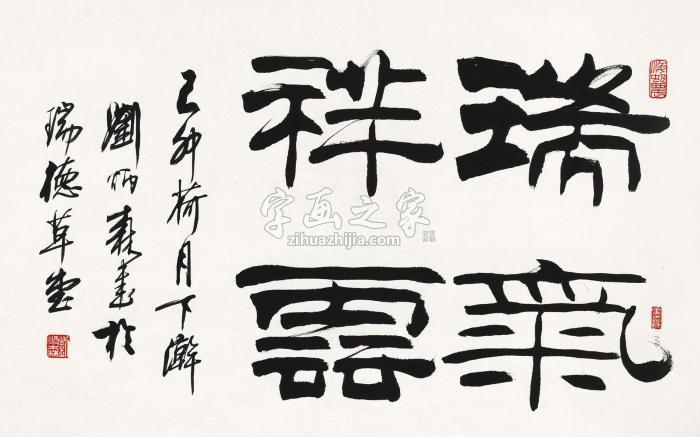 瑞氣
祥雲
己卯荷月下澣
劉炳森書於
瑞德草堂
字画之家
zihuazhijia.com